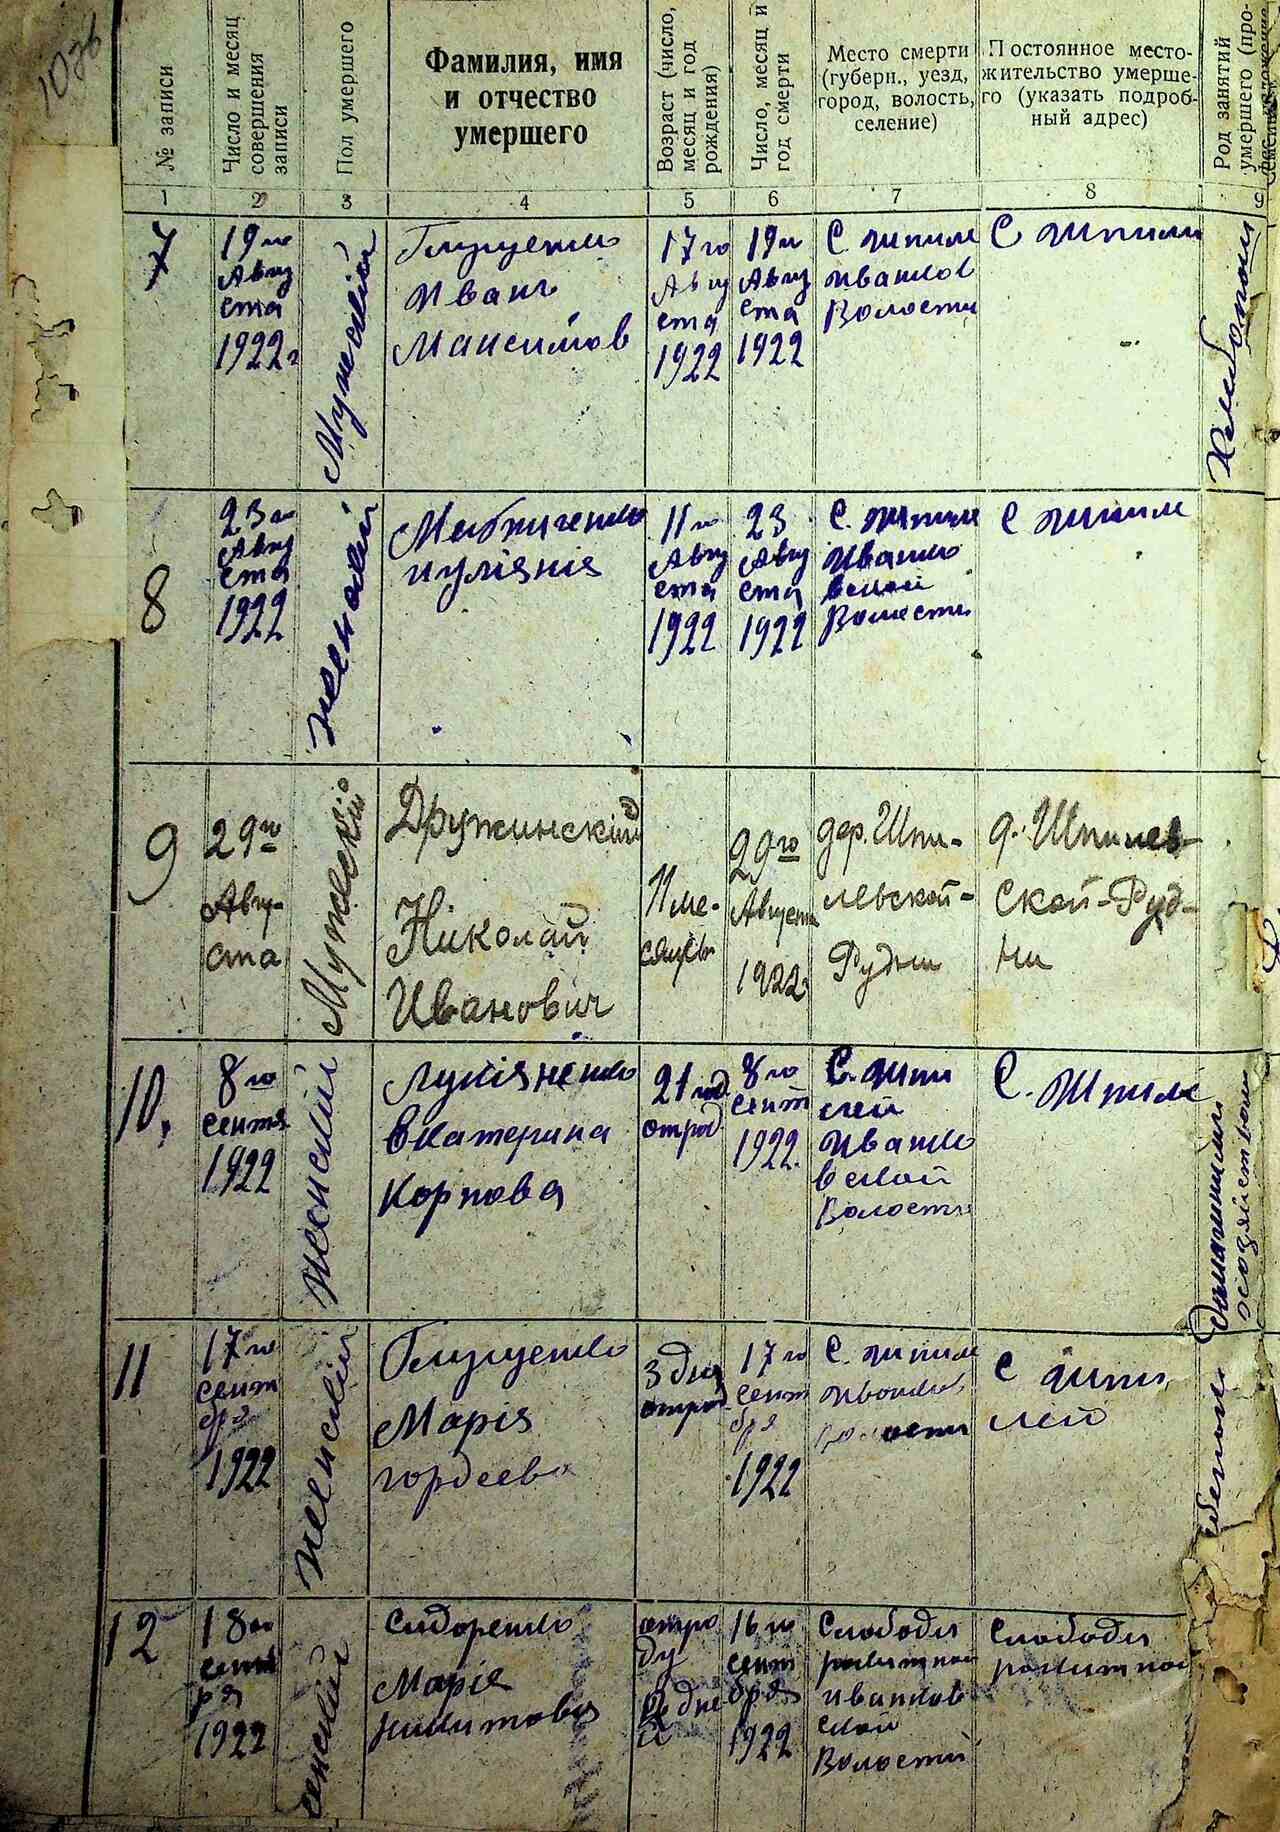 № записи
Число и месяц
совершения
записи
Пол умершего
Фамилия, имя
и отчество
умершего
Возраст (число,
месяц и год
рождения)
Число, месяц и
год смерти
Место смерти
(губерн., уезд,
город, волость,
селение)
Постоянное место-
жительство умерше-
го (указать подроб-
ный адрес)
Род занятий
умершего (про-
1
2
3
4
5
6
7
8
9
7
19го
Авгу
ста
1922г
Мужской
Глущенко
Иван
Максимов
17го
Авгу
ста
1922
19го
Авгу
ста
1922
С. Шпили
Иванков
Волости
С Шпили
Хлебопаш
8
23го
Авгу
ста
1922
женский
11го
Авгу
ста
1922
23
Авгу
ста
1922
С. Шпили
Иванко
вской
Волости
С Шпили
9
29го
Авгу-
ста
Мужской
Дружинский
Николай
Иванович
11 ме-
сяцы
29го
Августа
1922
дер. Шпи-
левской-
Рудни
д. Шпилев-
ской-Руд-
ни
10.
8го
сентя
1922
женский
Лукіяненко
Екатерина
Корпова
21 год
отрод
8го
сент
1922.
С. Шпи
лей
Иванко
вской
Волости
С. Шпилі
Домашним
хозяйством
11
17го
сент
бря
1922
женский
Глущенко
Марія
Гордеева
3 дня
отрод
17го
сент
бря
1922
С. Шпили
Иванков
Волости
С Шпи
лей
12
18го
сент
ря
1922
женский
Сидоренко
Марія
Никитовна
отро
ду
дне
й
16го
сент
бря
1922
Слободы
Иванков
ской
Волости
Слободы